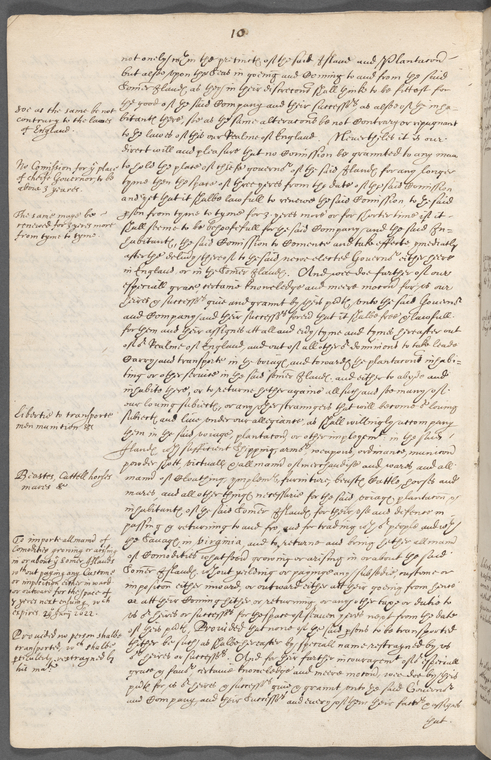 10
not onely in the precinct of the said Islands and Plantacon
but alsoe upon the Seas in goeing and Coming to and from the said
Somer Islands, as they in their discretions shall thinke to be fittest for
the good of the said Company and their successrs as alsoe of the inha-
bitants there, soe as the same alteratons be not Contrary or repugnant
to the lawes of this our Realme of England Neverthelesse it is our
direct will and pleasure that no Comission be graunted to any man
to hold the place of cheife governor of the said Islands for any longer
tyme then the space of three yeres from the date of the said Comission
and yet that it shalbe lawfull to renewe the said Comission to the said
pson from tyme to tyme for 3 yeres more or for shorter time as it
shall seeme to be behoofefull for the said Company, and the said In-
habitants, the said Comission to Comence and take effecte ymediatly
after the delivery thereof to the said newe elected Governor either here
in England, or in the Somer Islands. And wee doe further of our
especiall grace certaine knowledge and meere motion for us our
heires & successrs give and graunt by theis pnts unto the said Governor
and Company and their successrs forever that it shalbe free & lawfull
for them and their assignes att all and every tyme and tymes hereafter out
of or Realme of England and out of all other or dominions to take leade
Carry and transporte in the voiage and towards the plantacon inhabi-
ting or other service in the said Somer Islands, and either to abyde and
inhabite there, or to returne hither againe all such and so many of
our loving subiects, or any other straungers that will become or loving
subiects and live under our allegiance, as shall willingly accompany
them in the said voiage, plantacon or other imployemt in the said
Islands wth sufficient shipping, armor weapons, ordinance, municon
powder shott victualls & all manr of merchandize and wares and all
manr of Cloathing ymplemts, furniture, beasts Cattle horses and
mares and all other things necessarie for the said voiage plantacon &
inhabitants of the said Somer Islands for their use and defence in
passing & returning to and fro and for trading wth the people and wth
the Savages in Virginia and to returne and bring hither all manr
of Comodities whatsoever growing or arising in or about the said
Somer Islands, wthout yelding or paying any subsidie, custome or
imposicon either inward or outward either att their goeing from hence
or att their coming hither or returning, or any other taxe or dutie to
us or heires or successrs for the space of seaven yeres next from the date
of theis pnts Provided that none of the said psons to be transported
thither be such as shalbe hereafter by speciall name restrayned by us
or heires or successrs. And for their further incouragemt of or especiall
grace certaine knowledge, and meere motion, wee doe by theis
pnts for us or heires & successrs give & graunt unto the said Governor
and Company, and their Successrs and every of them their factors & assignes
that
soe as the same be not
contrary to the lawes
of England
No Comission for ye place
of cheife Governor to be
above 3 yeares.
The same maye be
renewed for 3 yeres more
from tyme to tyme
Libertie to transporte
men munition &c
Beastes, Cattell horses
mares &c
To import all mann of
Comodities growing or arising
in or about ye Somer Islands
wthout paying any Custome
or imposicon either inward
or outward for the space of
7 yeres next ensuing, wch
expires 29 Juny 1622.
Provided no person shalbe
transported, wch shalbe
pticulerly restrayned by
his matie